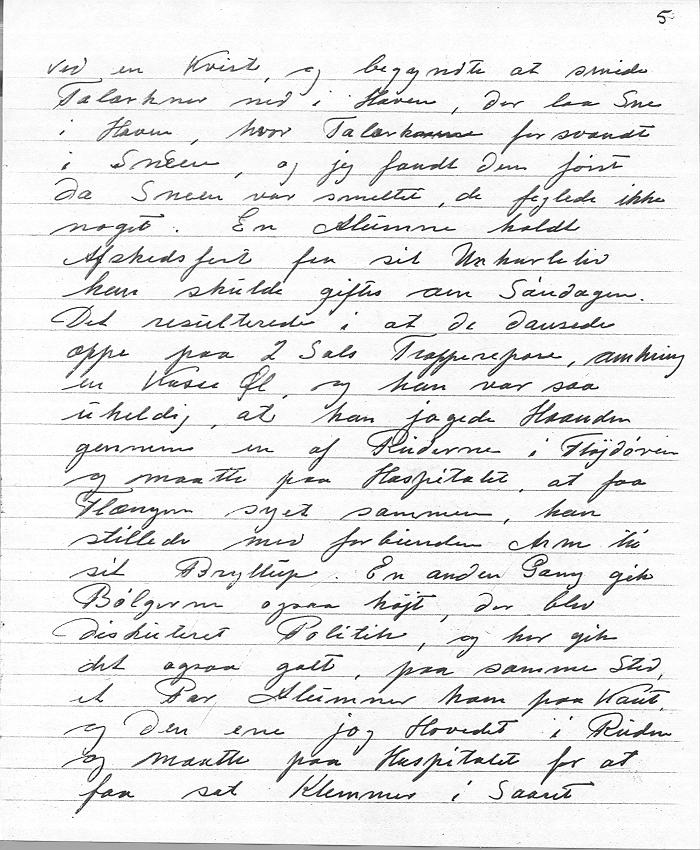 5
ved en Kvist, og begyndte at smide
Talærkner ned i Haven, der laa Sne
i Haven, hvor Talærknerne forsvandt
i Sneen, og jeg fandt dem først
da Sneen var smeltet, de fejlede ikke
noget. En Alumne holdt
Afskedsfest fra sit Unkarleliv
han skulde giftes om Søndagen.
Det resulterede i at de dansede
oppe paa 2 Sals Trapperepore, omkring
en Kasse Øl, og han var saa
uheldig, at han jagede Haanden
gennem en af Ruderne i Fløjdøren
og maatte paa Hospitalet, at faa
Flængen syet sammen, han
stillede med forbunden Arm til
sit Bryllup. En anden Gang gik
Bølgerne ogsaa højt, der blev
diskuteret Politik, og her gik
det ogsaa galt, paa samme Sted,
et Par Alumner kom paa Kant,
og den ene jog Hovedet i Ruden
og maatte paa Hospitalet for at
faa sat Klemmer i Saaret